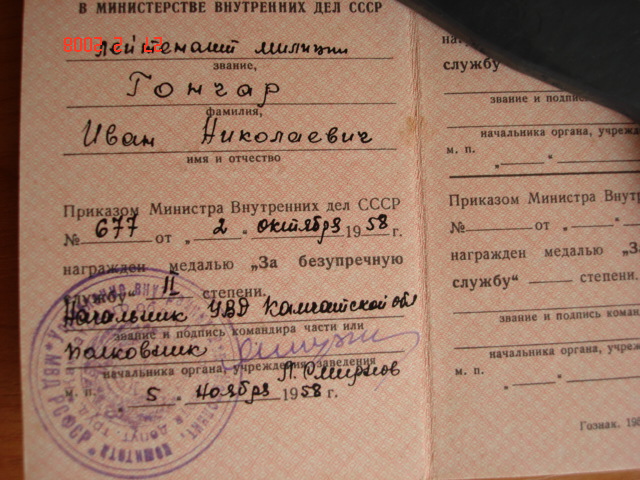 В МИНИСТЕРСТВЕ ВНУТРЕННИХ ДЕЛ СССР
лейтенант милиции
звание,
Гончар
фамилия,
Иван Николаевич
имя и отчество
Приказом Министра Внутренних дел СССР
№ 677 от „2" октября 1958 г.
награжден медалью „За безупречную
службу" II степени.
Начальник УВД Камчатской обл
звание и подпись командира части или
полковник
начальника органа, учреждения, заведения
Л. Смирнов
м. п. „5" ноября 1958 г.
МВД РСФСР
службу"
звание и подпись
начальника органа, учрежд
м. п. „ "
Приказом Министра Внутр
№ от „ "
награжден медалью „За
службу" степени.
звание и подпись коман
начальника органа, учрежд
м. п. „ "
Гознак. 195